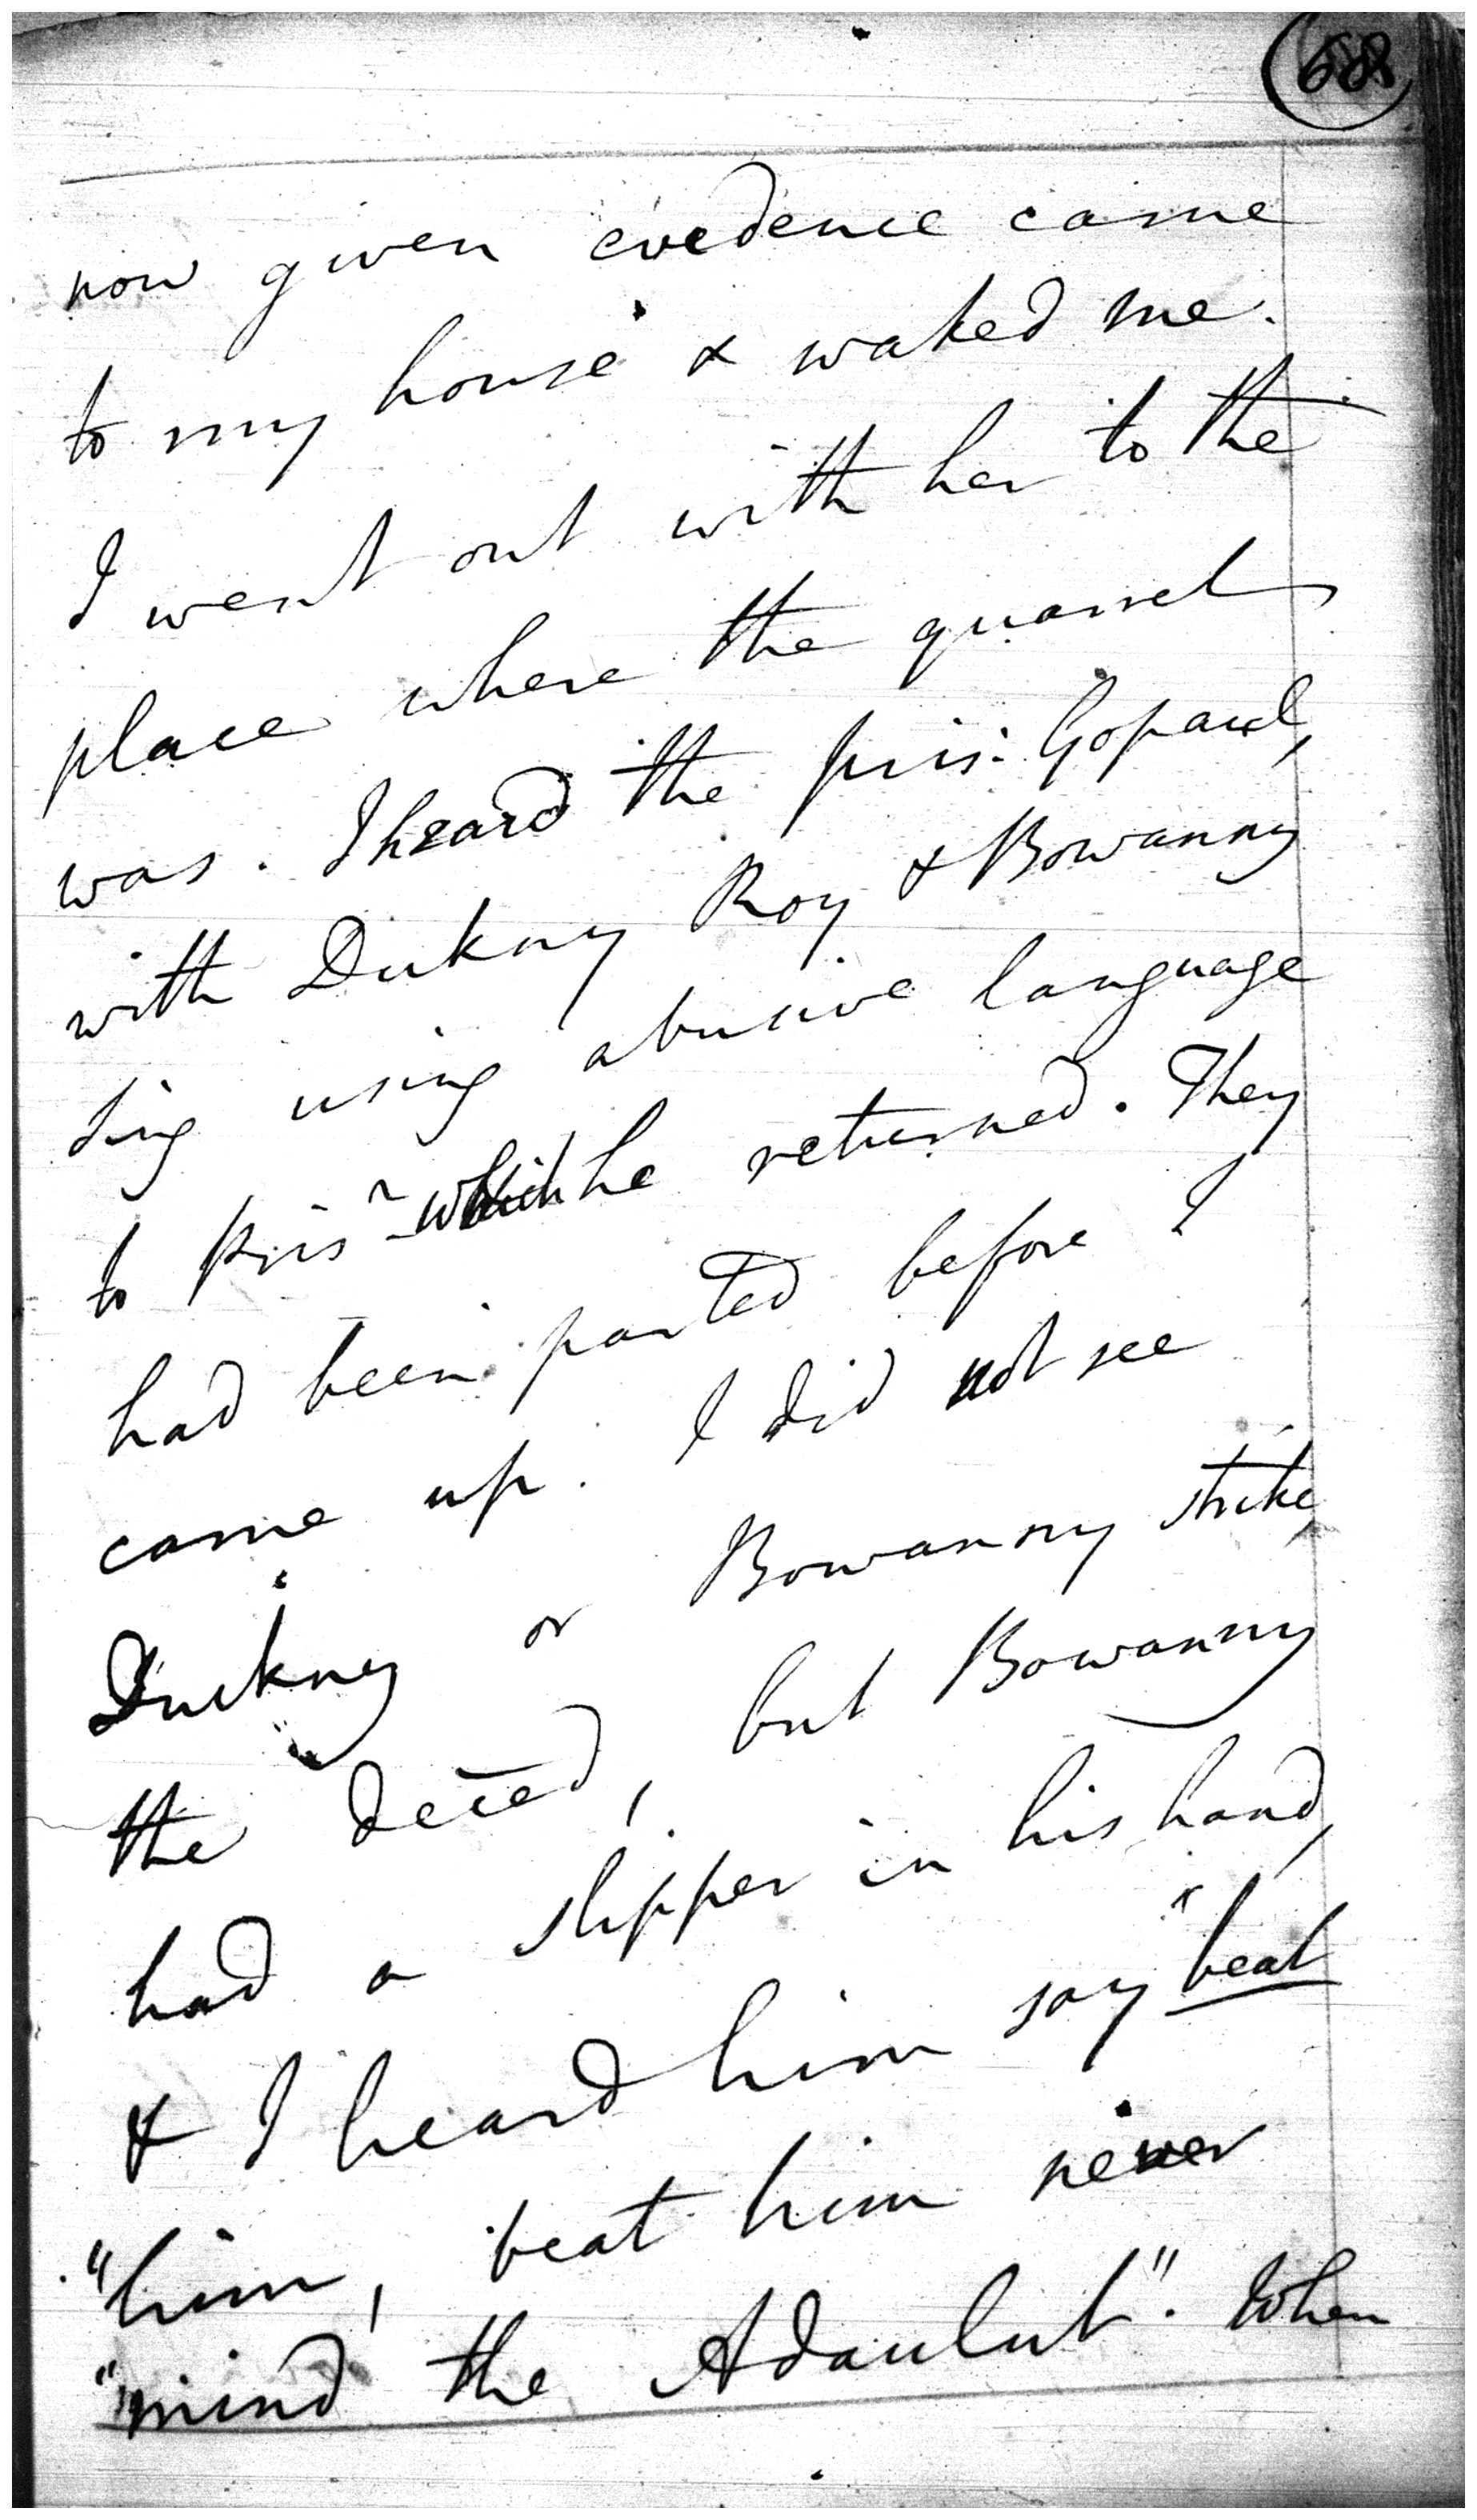 68
now given evedence came
to my house & waked me.
I went out with her to the
place where the quarrel
was. I heard the pris: Gopaul,
with Dukny Roy & Bowanny
Sing using abusive language
to Pris^r which he returned. They
had been parted before I
came up. I did not see
Duckny or Bowanny strike
the deced, but Bowanny
had a slipper in his hand,
& I heard him say "beat
"him, beat him never
"mind the Adaulut". When